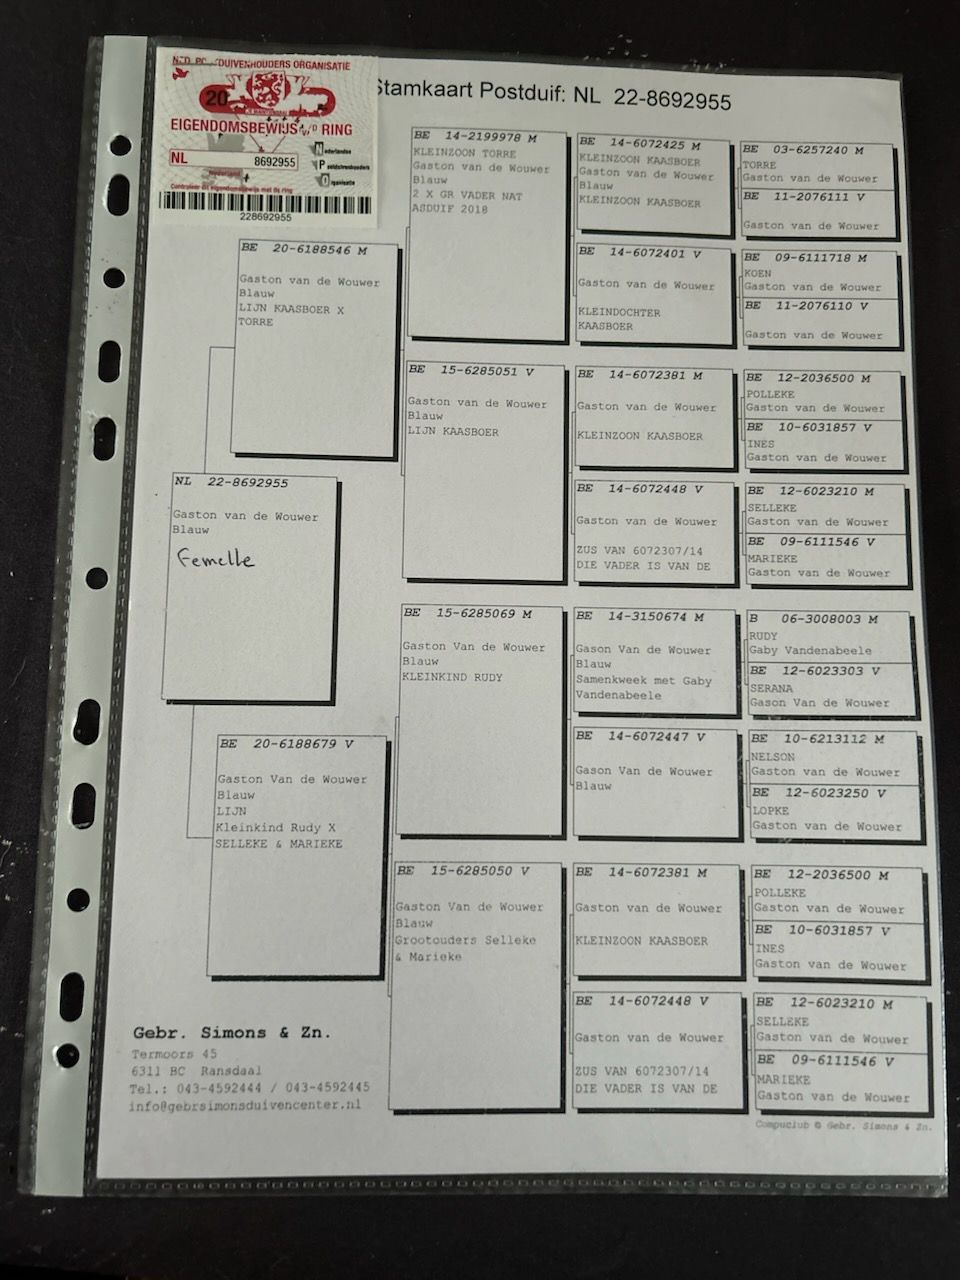 NED. PO DUIVENHOUDERS ORGANISATIE
20
EIGENDOMSBEWIJS V/D RING
NL 8692955
Nederland
Nederlandse
Postduivenhouders
Organisatie
Controleer dit eigendomsbewijs met de ring
228692955
Stamkaart Postduif: NL 22-8692955
NL 22-8692955
Gaston van de Wouwer
Blauw
Femelle
BE 20-6188546 M
Gaston van de Wouwer
Blauw
LIJN KAASBOER X
TORRE
BE 20-6188679 V
Gaston Van de Wouwer
Blauw
LIJN
Kleinkind Rudy X
SELLEKE & MARIEKE
BE 14-2199978 M
KLEINZOON TORRE
Gaston van de Wouwer
Blauw
2 X GR VADER NAT
ASDUIF 2018
BE 15-6285051 V
Gaston van de Wouwer
Blauw
LIJN KAASBOER
BE 15-6285069 M
Gaston Van de Wouwer
Blauw
KLEINKIND RUDY
BE 15-6285050 V
Gaston Van de Wouwer
Blauw
Grootouders Selleke
& Marieke
BE 14-6072425 M
KLEINZOON KAASBOER
Gaston van de Wouwer
Blauw
KLEINZOON KAASBOER
BE 14-6072401 V
Gaston van de Wouwer
KLEINDOCHTER
KAASBOER
BE 14-6072381 M
Gaston van de Wouwer
KLEINZOON KAASBOER
BE 14-6072448 V
Gaston van de Wouwer
ZUS VAN 6072307/14
DIE VADER IS VAN DE
BE 14-3150674 M
Gason Van de Wouwer
Blauw
Samenkweek met Gaby
Vandenabeele
BE 14-6072447 V
Gason Van de Wouwer
Blauw
BE 14-6072381 M
Gaston van de Wouwer
KLEINZOON KAASBOER
BE 14-6072448 V
Gaston van de Wouwer
ZUS VAN 6072307/14
DIE VADER IS VAN DE
BE 03-6257240 M
TORRE
Gaston van de Wouwer
BE 11-2076111 V
Gaston van de Wouwer
BE 09-6111718 M
KOEN
Gaston van de Wouwer
BE 11-2076110 V
Gaston van de Wouwer
BE 12-2036500 M
POLLEKE
Gaston van de Wouwer
BE 10-6031857 V
INES
Gaston van de Wouwer
BE 12-6023210 M
SELLEKE
Gaston van de Wouwer
BE 09-6111546 V
MARIEKE
Gaston van de Wouwer
B 06-3008003 M
RUDY
Gaby Vandenabeele
BE 12-6023303 V
SERANA
Gason Van de Wouwer
BE 10-6213112 M
NELSON
Gaston van de Wouwer
BE 12-6023250 V
LOPKE
Gaston van de Wouwer
BE 12-2036500 M
POLLEKE
Gaston van de Wouwer
BE 10-6031857 V
INES
Gaston van de Wouwer
BE 12-6023210 M
SELLEKE
Gaston van de Wouwer
BE 09-6111546 V
MARIEKE
Gaston van de Wouwer
Gebr. Simons & Zn.
Termoors 45
6311 BC Ransdaal
Tel.: 043-4592444 / 043-4592445
info@gebrsimonsduivencenter.nl
Compuclub © Gebr. Simons & Zn.